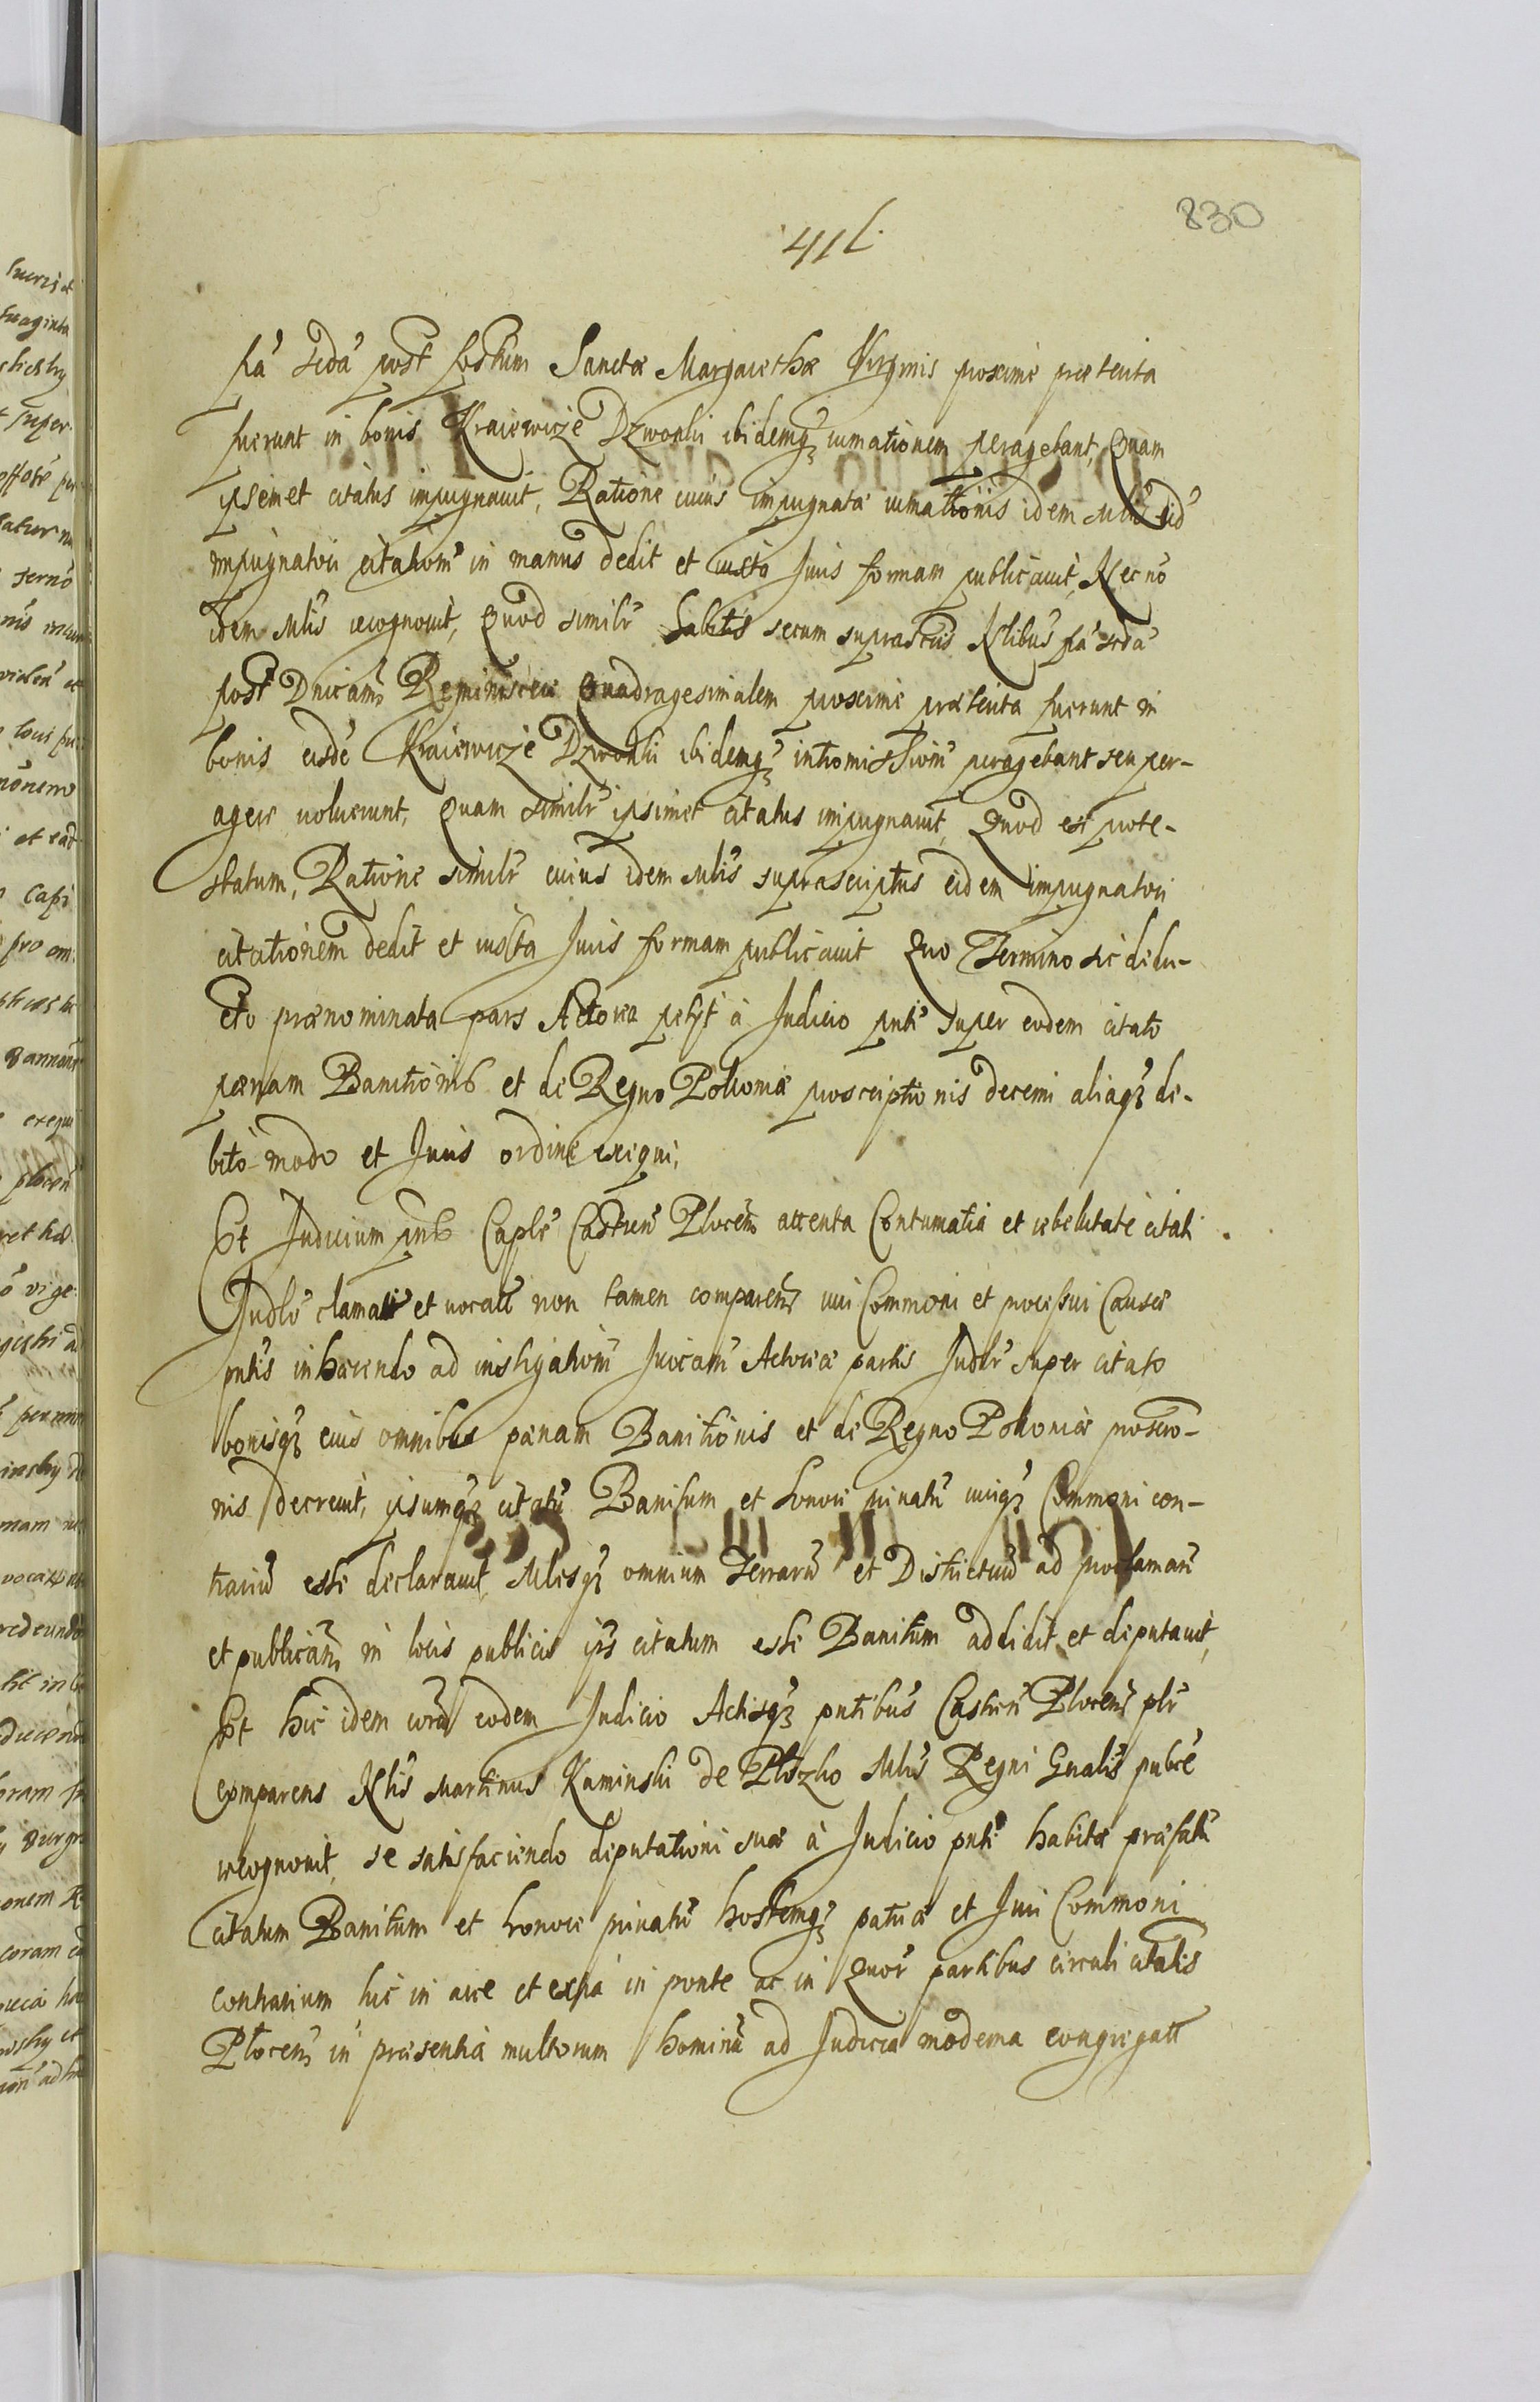 830
411.
fa' seda' post festum Sanctæ Margarethæ Virginis proxime præterita
fuerunt in bonis Kraiewicze Dzwonki ibidemq3 iumationem peragebant, Quam
ipsemet citatus impugnauit, Ratione cuius impugnatæ iumationis idem Mlis eid'
impugnatori citationē in manus dedit et iuxta Juris formam publicauit, Nec no
idem Mlis recognouit, Quod similr habitis secum suprascris Nlibus fa seda
post Dnicam Reminiscere Quadragesimalem proxime præterita fuerunt in
bonis eisdē Kraiewicze Dzwonki ibidemq3 intromissionē peragebant seu per-
agere uoluerunt, Quam similr ipsimet citatus impugnauit, Quod est prote-
statum, Ratione similr cuius idem Mlis suprascriptus eidem impugnatori
citationem dedit et iuxta Juris formam publicauit Quo Termino sic dedu-
cto prænominata pars Actorea petijt à Judicio pnti super eodem citato
pœnam Banitionis et de Regno Poloniæ proscriptionis decerni aliaq3 de-
bito modo et Juris ordine exequi,
Et Judicium pns Caple Castren Plocen attenta Contumatia et rebelitate citati
Judlr clamati et uocati non tamen comparen iuri Commoni et processui Causæ
pntis inhærendo ad instigationē Juridicam Actoreæ partis Judlr super citato
bonisq3 eius omnibus pœnam Banitionis et de Regno Poloniæ proscrio-
nis decreuit, ipsumq3 citatū Banitum et honore priuatū iuriq3 Commoni con-
trariū esse declarauit, Mlesq3 omnium Terrarū et Districtuū ad proclamanē
et publicanē in locis publicis ips citatum esse Banitum addidit et deputauit,
Et hic idem corā eodem Judicio Actisq3 pntibus Castren Plocen plr
comparens Nlis Martinus Kaminski de Ploszko Mlis Regni Gnalis pubce
recognouit, se satisfaciendo deputationi suæ à Judicio pnti habitæ præfatū
citatum Banitum et honore priuatū hostemq3 patriæ et Juri Commoni
contrarium hic in arce et extra in ponte ac in Quor partibus circuli citatis
Plocen in præsentia multorum hominū ad Judicia moderna congregatt